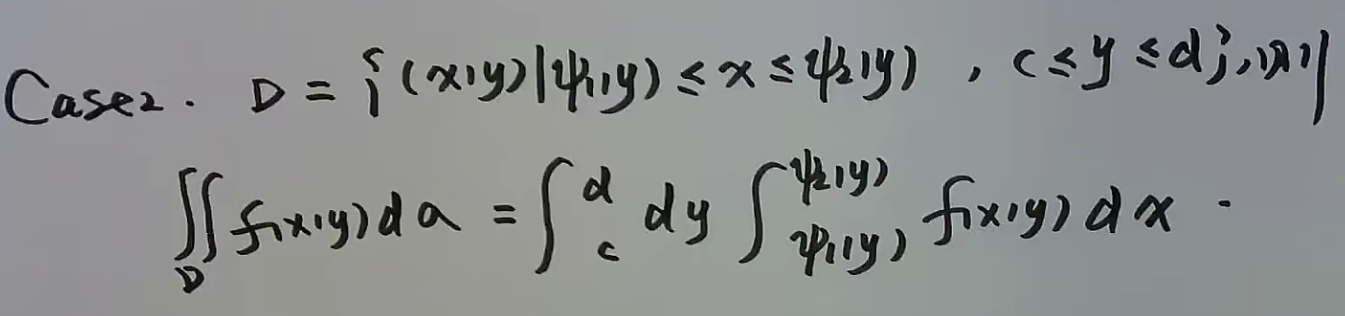 Case2. D = {(x,y)|ψ₁(y) ≤ x ≤ ψ₂(y), c ≤ y ≤ d}, 则
∬_D f(x,y)da = ∫_c^d dy ∫_{ψ₁(y)}^{ψ₂(y)} f(x,y)dx.